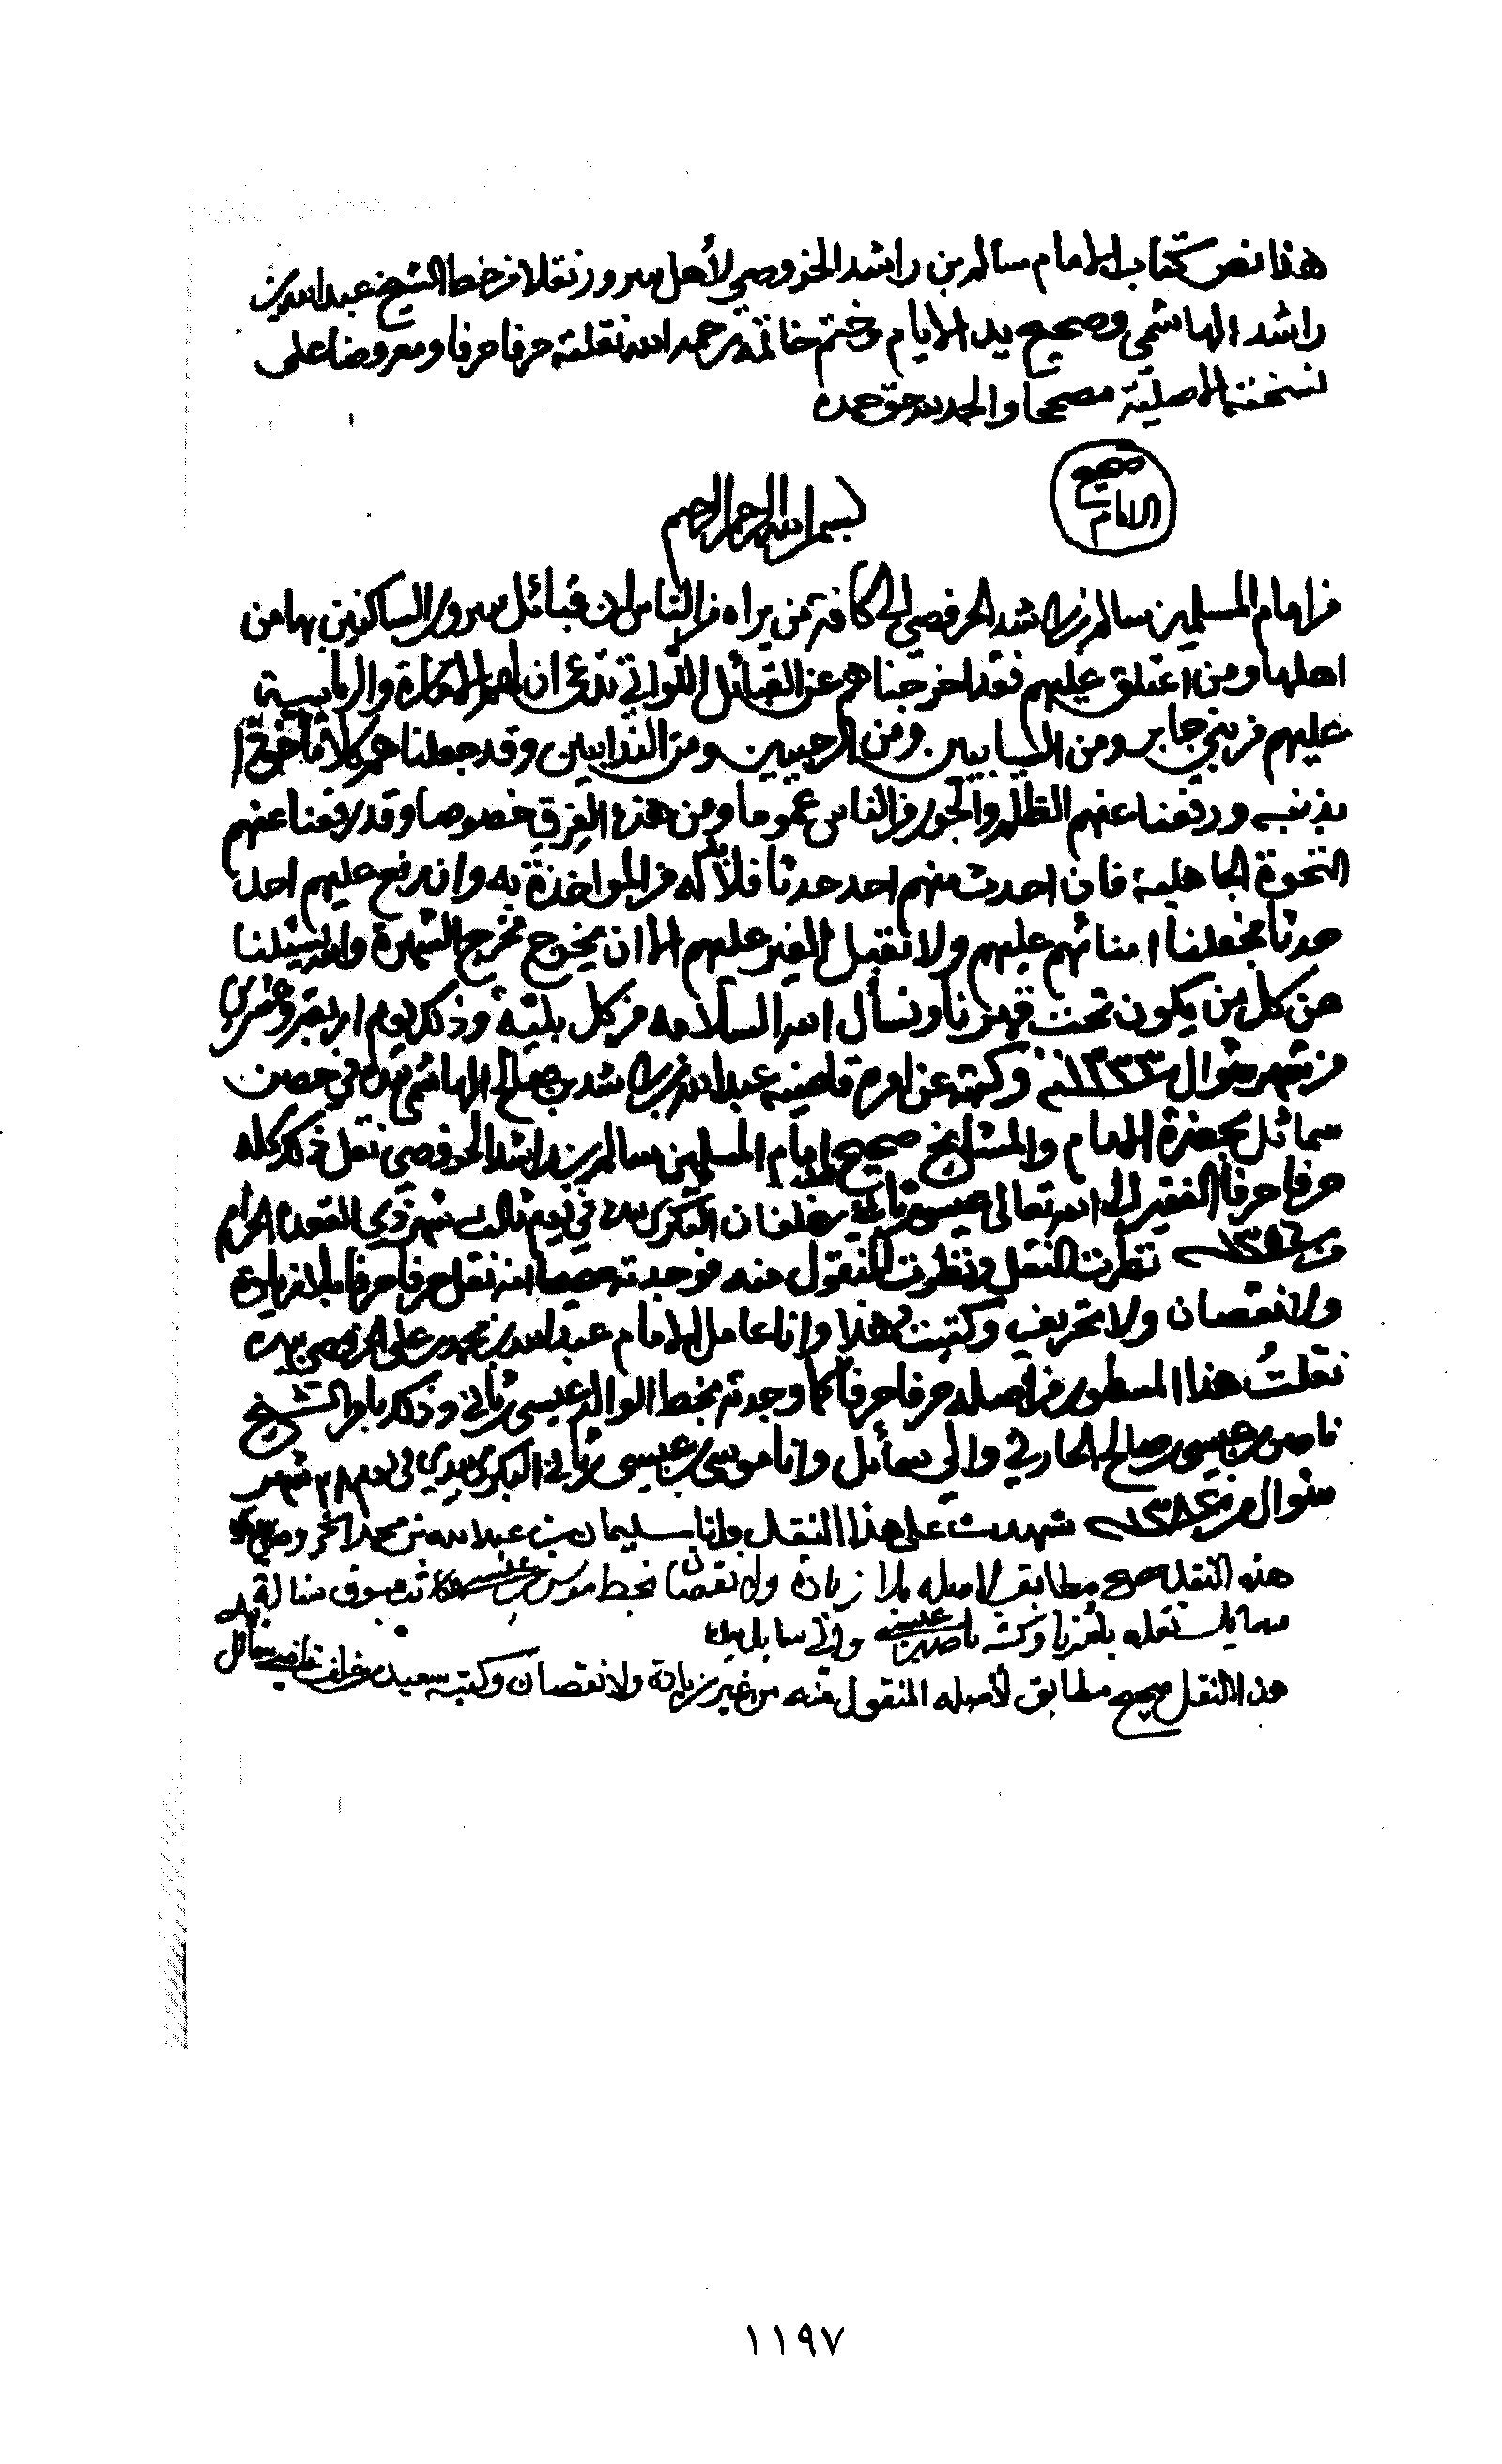 هذا نص كتاب الامام سالم بن راشد الخروصي لأهل سرور نقلا من خط الشيخ عبدالله بن
راشد الهاشمي وصحيح يد الامام وختم خاتمه رحمه الله نقلته حرفا حرفا ومعروضا على
نسخته الاصلية مصححا والحمدلله حق حمده
صحيح
الامام
بسم الله الرحمن الرحيم
من امام المسلمين سالم بن راشد الخروصي الى كافة من يراه من الناس ان قبائل سرور الساكنين بها من
اهلها ومن اعتلق عليهم فقد اخرجناهم عن القبائل اللواتي تدعي ان لهم الامارة والرياسة
عليهم من بني جابر ومن السيابيين ومن الرحبيين ومن الندابيين وقد جعلناهم كلا مأخوذا
بذنبه ورفعنا عنهم الظلم والجور من الناس عموما ومن هذه الفرق خصوصا وقد رفعنا عنهم
النخوة الجاهلية فان احدث منهم احد حدثا فلا بد له من المواخذة به وان يرفع عليهم احد
حدثا فجعلنا امنائهم عليهم ولا نقبل الغير عليهم الا ان يخرج مخرج الشهرة والله يسئلنا
عن كل من يكون تحت قهرنا ونسأل الله السلامه من كل بليّة وذلك يوم اربعة وعشرين
من شهر شوال سنة ١٣٣٣ وكتبه عن امره قاضيه عبدالله بن راشد بن صالح الهاشمي بيده في حصن
سمائل بحضرة الامام والمشايخ صحيح امام المسلمين سالم بن راشد الخروصي نقل ذلك كله
حرفا حرفا الفقير الى الله تعالى عيسى بن ثاني بن خلفان البكري بيده في يوم ثالث شهر ذي القعدة الحرام
من سنة ١٣٥٦ نظرت النقل ونظرت المنقول منه فوجدته صحيحا انه نقل حرفا حرفا بلا زيادة
ولا نقصان ولا تحريف وكتبت هذا وانا عامل الامام عبدالله بن محمد بن علي الخروصي بيده
نقلتُ هذا المسطور من اصله حرفا حرفا كما وجدته بخط الوالد عيسى بن ثاني وذلك بامر الشيخ
ناصر بن عيسى بن صالح الحارثي والي سمائل وانا موسى بن عيسى بن ثاني البكري بيدي في يوم ٢٨ شهر
شوال من سنة ١٣٨٤ شهدت على هذا النقل وانا سليمان بن عبدالله بن محمد الخروصي بيده
هذه النقلة صحيح مطابق لاصله بلا زيادة ولا نقصان بخط موسى بن عيسى
سمايل نقله بأمرنا وكتبه ناصر بن عيسى والي سمايل بيده
هذا النقل صحيح مطابق لأصله المنقول منه من غير زيادة ولا نقصان وكتبه سعيد بن خلف قاضي سمائل
١١٩٧